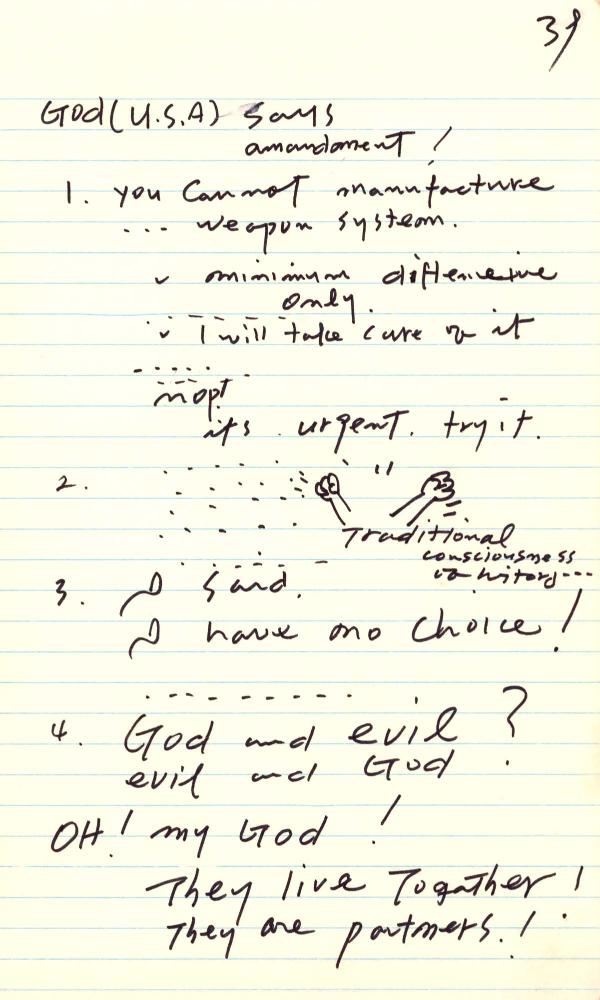 39
God (U.S.A) says
amandament !
1. you Cannot manufacture
... weapon system.
✓ minimum diffenceive
only.
✓ I will take care of it
nop!
its urgent. try it.
2.
Traditional
consciousness
or hitory---
3. I said.
I have no choice !
4. God and evil ?
evil and God
OH! my God !
They live Togather !
They are partners. !